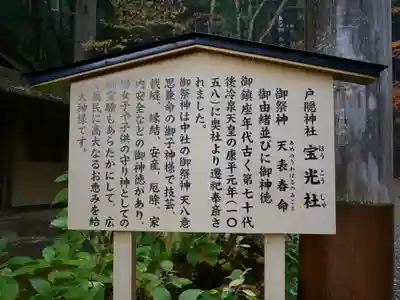 戸隠神社 宝光社
ほうこうしゃ
御祭神 天表春命
あめのうわはるのみこと
御由緒並びに御神徳
御鎮座年代古く人皇第七十代
後冷泉天皇の康平元年(一〇
五八)に奥社より遷祀奉斎さ
れました。
御祭神は中社の御祭神 天八意
思兼命の御子神様で技芸、
裁縫、縁結、安産、厄除、家
内安全などの御神徳があり、
婦女子や子供の守り神としての
御霊験もあらたかにして、広
く庶民に高大なるお恵みを給
う大神様です。